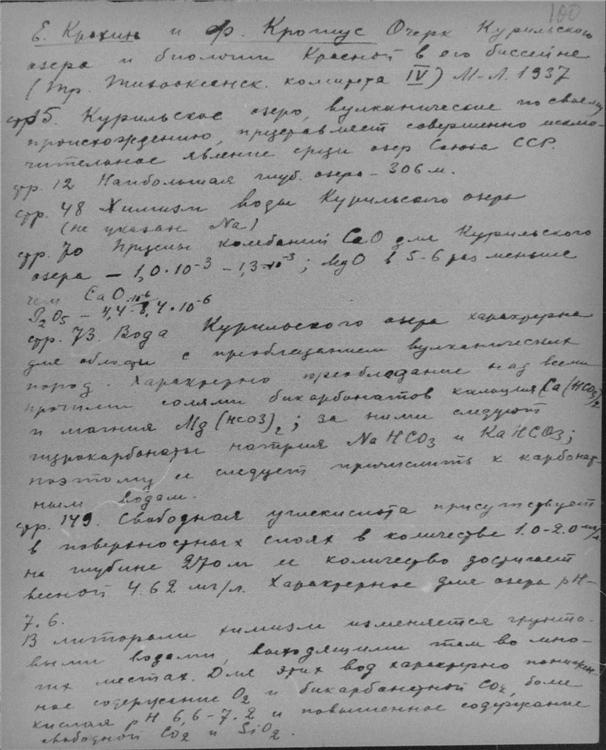 100
Е. Крохин и Ф. Крогиус Очерк Курильского
озера и биологии Красной в его бассейне
(Тр. Тихоокеанск. комитета IV) М-Л. 1937
стр 5 Курильское озеро, вулканические по своему
происхождению, представляет совершенно исклю-
чительное явление среди озер Союза ССР.
стр. 12 Наибольшая глуб. озера - 306 м.
стр. 48 Химизм воды Курильского озера
(не указан Na)
стр. 70 Пределы колебаний CaO для Курильского
озера - 1,0·10-3 - 1,3·10-3; MgO в 5-6 раз меньше
чем CaO
P2O5 - 4,4·10-6 8,4·10-6
стр. 73. Вода Курильского озера характерна
для области с преобладанием вулканических
пород. Характерно преобладание над всеми
прочими солями бикарбонатов кальция Ca(HCO3)2
и магния Mg(HCO3)2; за ними следуют
гидрокарбонаты натрия NaHCO3 и KaHCO3;
поэтому ее следует причислить к карбонат-
ным водам.
стр. 149. Свободная углекислота присутствует
в поверхностных слоях в количестве 1.0-2.0 мг/л
на глубине 270 м ее количество достигает
весной 4.62 мг/л. Характерное для озера pH-
7.6.
В литорали химизм изменяется грунто-
выми водами, выходящими там во мно-
гих местах. Для этих вод характерно понижен-
ное содержание O2 и бикарбонатной CO2, более
кислая pH 6,6-7.2 и повышенное содержание
свободной CO2 и SiO2.